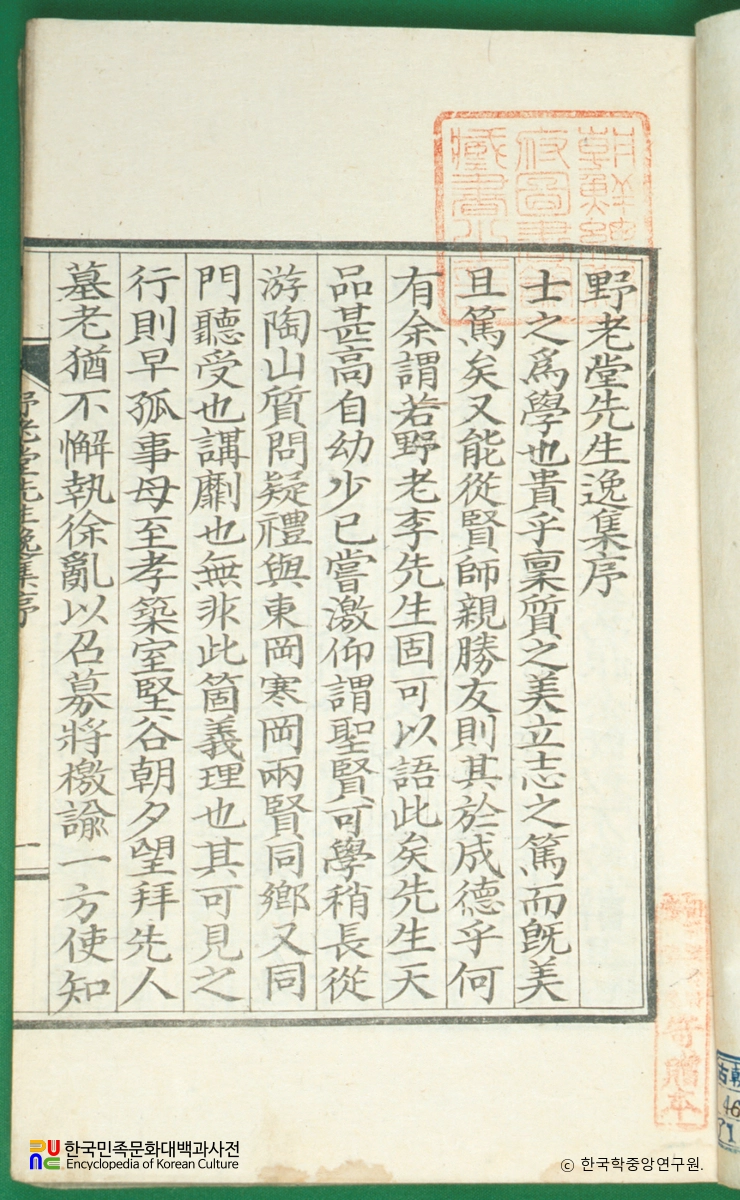 野老堂先生逸集序
士之爲學也貴乎稟質之美立志之篤而旣美
且篤矣又能從賢師親勝友則其於成德乎何
有余謂若野老李先生固可以語此矣先生天
品甚高自幼少已嘗激仰謂聖賢可學稍長從
游陶山質問疑禮與東岡寒岡兩賢同鄕又同
門聽受也講劘也無非此箇義理也其可見之
行則早孤事母至孝築室堅谷朝夕望拜先人
墓老猶不懈執徐亂以召募將檄諭一方使知
野老堂先生逸集序
一
朝鮮總
府圖書
藏書
寄贈本
古朝
46
한국민족문화대백과사전
Encyclopedia of Korean Culture
© 한국학중앙연구원.